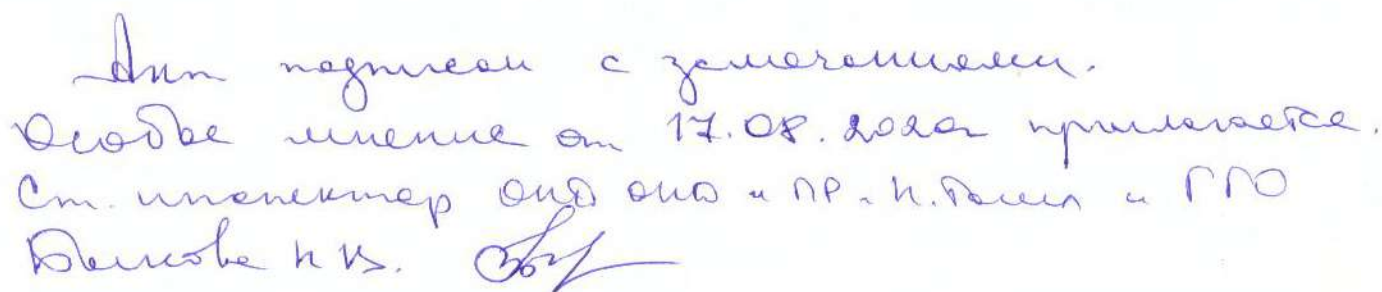 Акт подписан с замечаниями.
Особое мнение от 17.08.2020г прилагается.
Ст. инспектор ОНД и ПР и ГГО
К В.